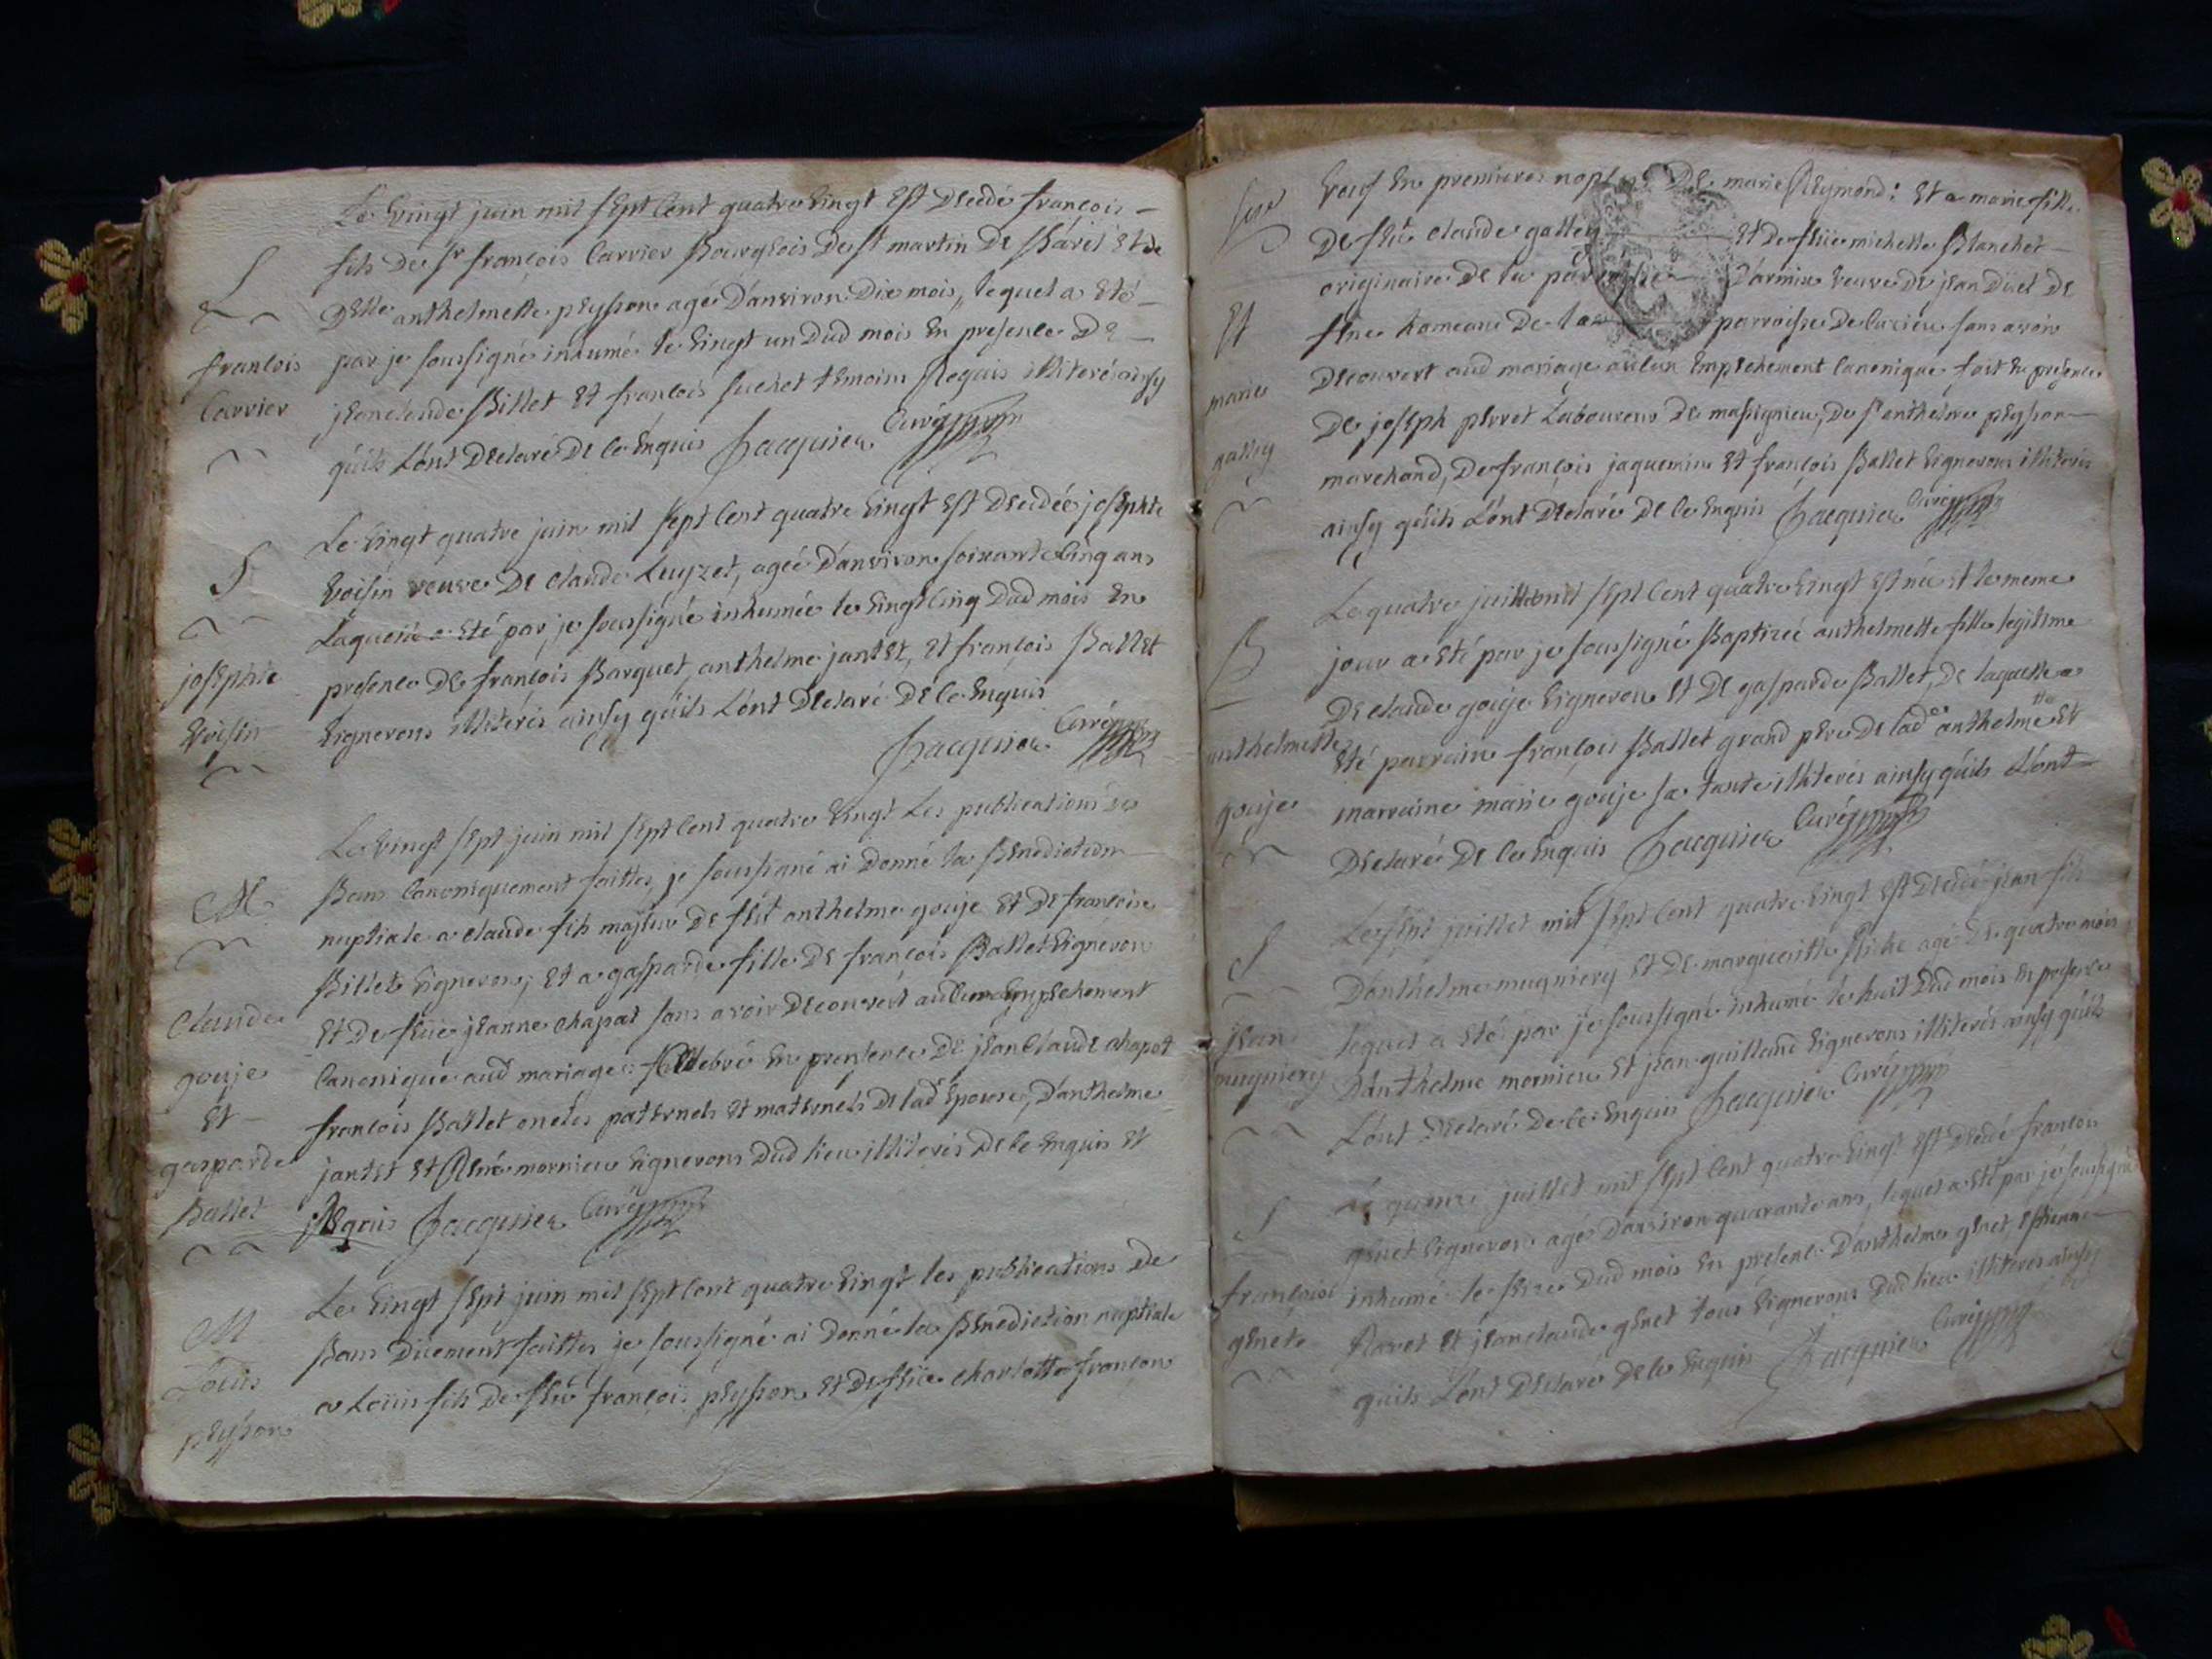 Le vingt juin mil sept cent quatre vingt est decedé francois
S
fils de sr francois Carrier Bourgeois de st martin de Bavel et de
delle anthelmette peysson agé d'anviron dix mois, lequel a eté
francois
par je soussigné inhumé le vingt un dud mois en presence de
Carrier
jeanclaude Billet et francois suchet temoins requis illiterés ainsy
qu'ils l'ont declaré de ce enquis Jacquier Curé
Le vingt quatre juin mil sept cent quatre vingt est decedée josephte
S
voisin veuve de claude Luyzet, agée d'anviron soixante cinq ans
Laquelle a eté par je soussigné inhumée le vingt cinq dud mois en
josephte
presence de françois Barquet, anthelme jantet, et françois Ballet
voisin
vignerons illiterés ainsy qu'ils l'ont declaré de ce enquis
Jacquier Curé
Le vingt sept juin mil sept cent quatre vingt Les publications de
M
Bans canoniquement faittes, je soussigné ai donné la Benediction
nuptiale a claude fils majeur de feu anthelme gouje et de francoise
Billet vignerons, et a gasparde fille de françois Ballet vigneron
claude
et de feüe jeanne chapat sans avoir decouvert aucun empechement
gouje
canonique aud mariage celebré en presence de jean claude chapot
et
francois Ballet oncles paternels et maternels de lade epouse, d'anthelme
gasparde
jantet et René mornieu vignerons dud lieu illiterés de ce enquis et
Ballet
requis Jacquier Curé
Le vingt sept juin mil sept cent quatre vingt les publications de
M
Bans düement faittes je soussigné ai donné la Benediction nuptiale
Loüis
a Loüis fils de feu françois peysson et de feüe charlotte françon
peysson
veuf en premieres nopces de marie Reymond; et a marie fille
de feu claude galley et de feüe michelle Blanchet
originaire de la parroisse d'armix veuve de jean Düet de
et
hameau de la parroisse de sans avoir
marie
decouvert aud mariage aucun empechement canonique fait en presence
de joseph perret Laboureur de massignieu, de sr anthelme peysson
galley
marchand, de françois jaquemin et françois Ballet vignerons illiterés
ainsy qu'ils l'ont declaré de ce enquis Jacquier Curé
Le quatre juillet mil sept cent quatre vingt est née et le meme
B
jour a eté par je soussigné Baptizée anthelmette fille legitime
de claude gouje vigneron et de gasparde Ballet, de laquelle a
anthelmette
eté parrain françois Ballet grand pere de lade anthelmette et
gouje
marraine marie gouje sa tante illiterés ainsy qu'ils l'ont
declaré de ce enquis Jacquier Curé
Le sept juillet mil sept cent quatre vingt est decedé jean fils
S
d'anthelme mugniery et de margueritte agé de quatre mois
jean
lequel a eté par je soussigné inhumé le huit dud mois en presence
mugniery
d'anthelme mornieu et jean guilland vignerons illiterés ainsy qu'ils
l'ont declaré de ce enquis Jacquier Curé
Le quinze juillet mil sept cent quatre vingt est decedé françois
S
genet vigneron agé d'anviron quarante ans, lequel a eté par je soussigné
françois
inhumé le seize dud mois en presence d'anthelme genet, estienne
genet
Ravet et jeanclaude genet tous vignerons dud lieu illiterés ainsy
qu'ils l'ont declaré de ce enquis Jacquier Curé